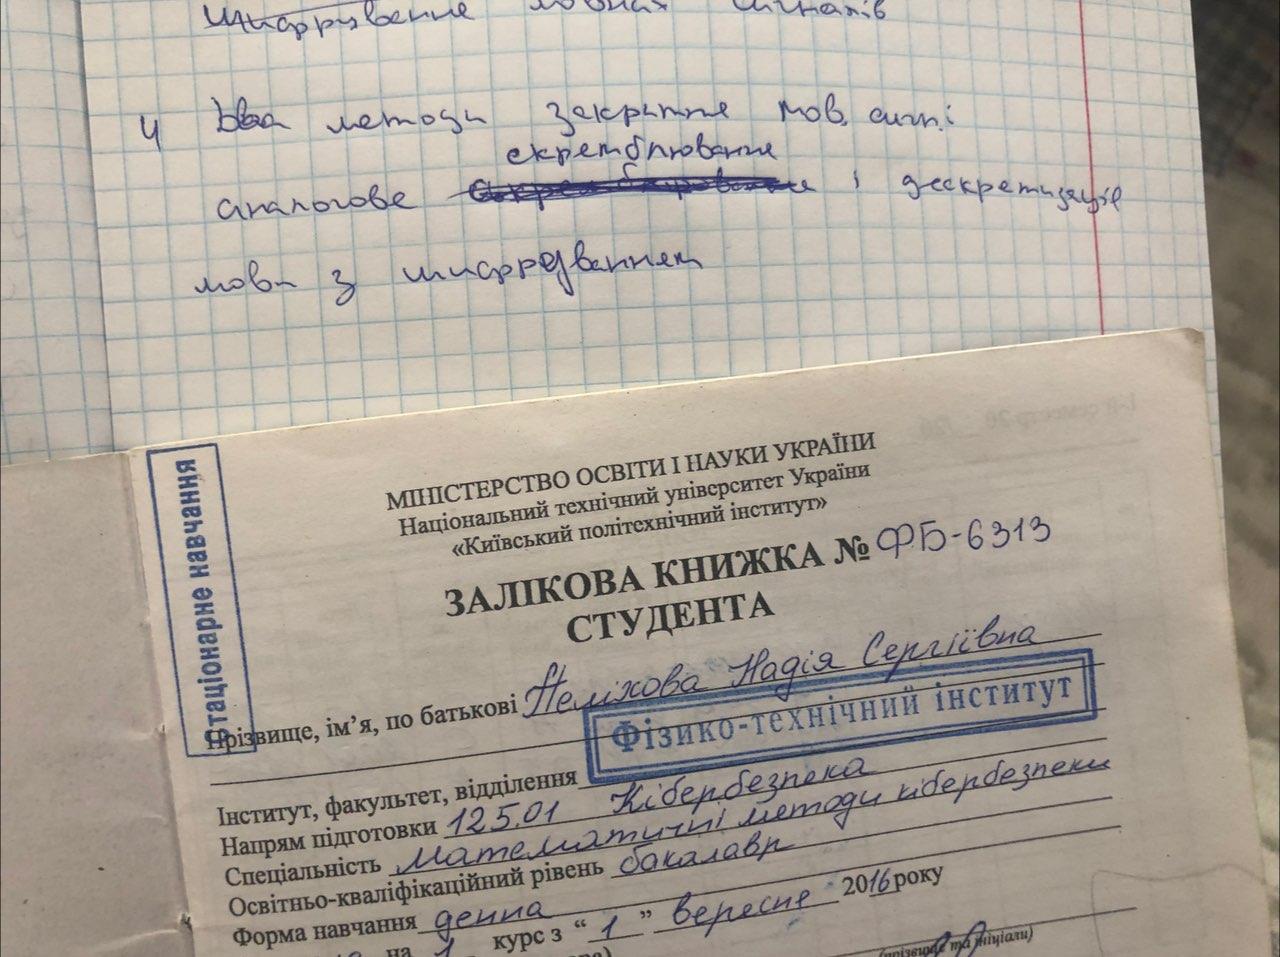 Шифрування мовних сигналів
4 Два методи закриття мов. сигн.:
скремблювання
аналогове і дискретизація
мови з шифруванням
Стаціонарне навчання
МІНІСТЕРСТВО ОСВІТИ І НАУКИ УКРАЇНИ
Національний технічний університет України
«Київський політехнічний інститут»
ЗАЛІКОВА КНИЖКА № ФБ-6313
СТУДЕНТА
Прізвище, ім’я, по батькові Неліхова Надія Сергіївна
Фізико-технічний інститут
Інститут, факультет, відділення
Напрям підготовки 125.01 Кібербезпека
Спеціальність Математичні методи кібербезпеки
Освітньо-кваліфікаційний рівень бакалавр
Форма навчання денна
на 1 курс з “ 1 ” вересня 2016 року
(прізвище та ініціали)